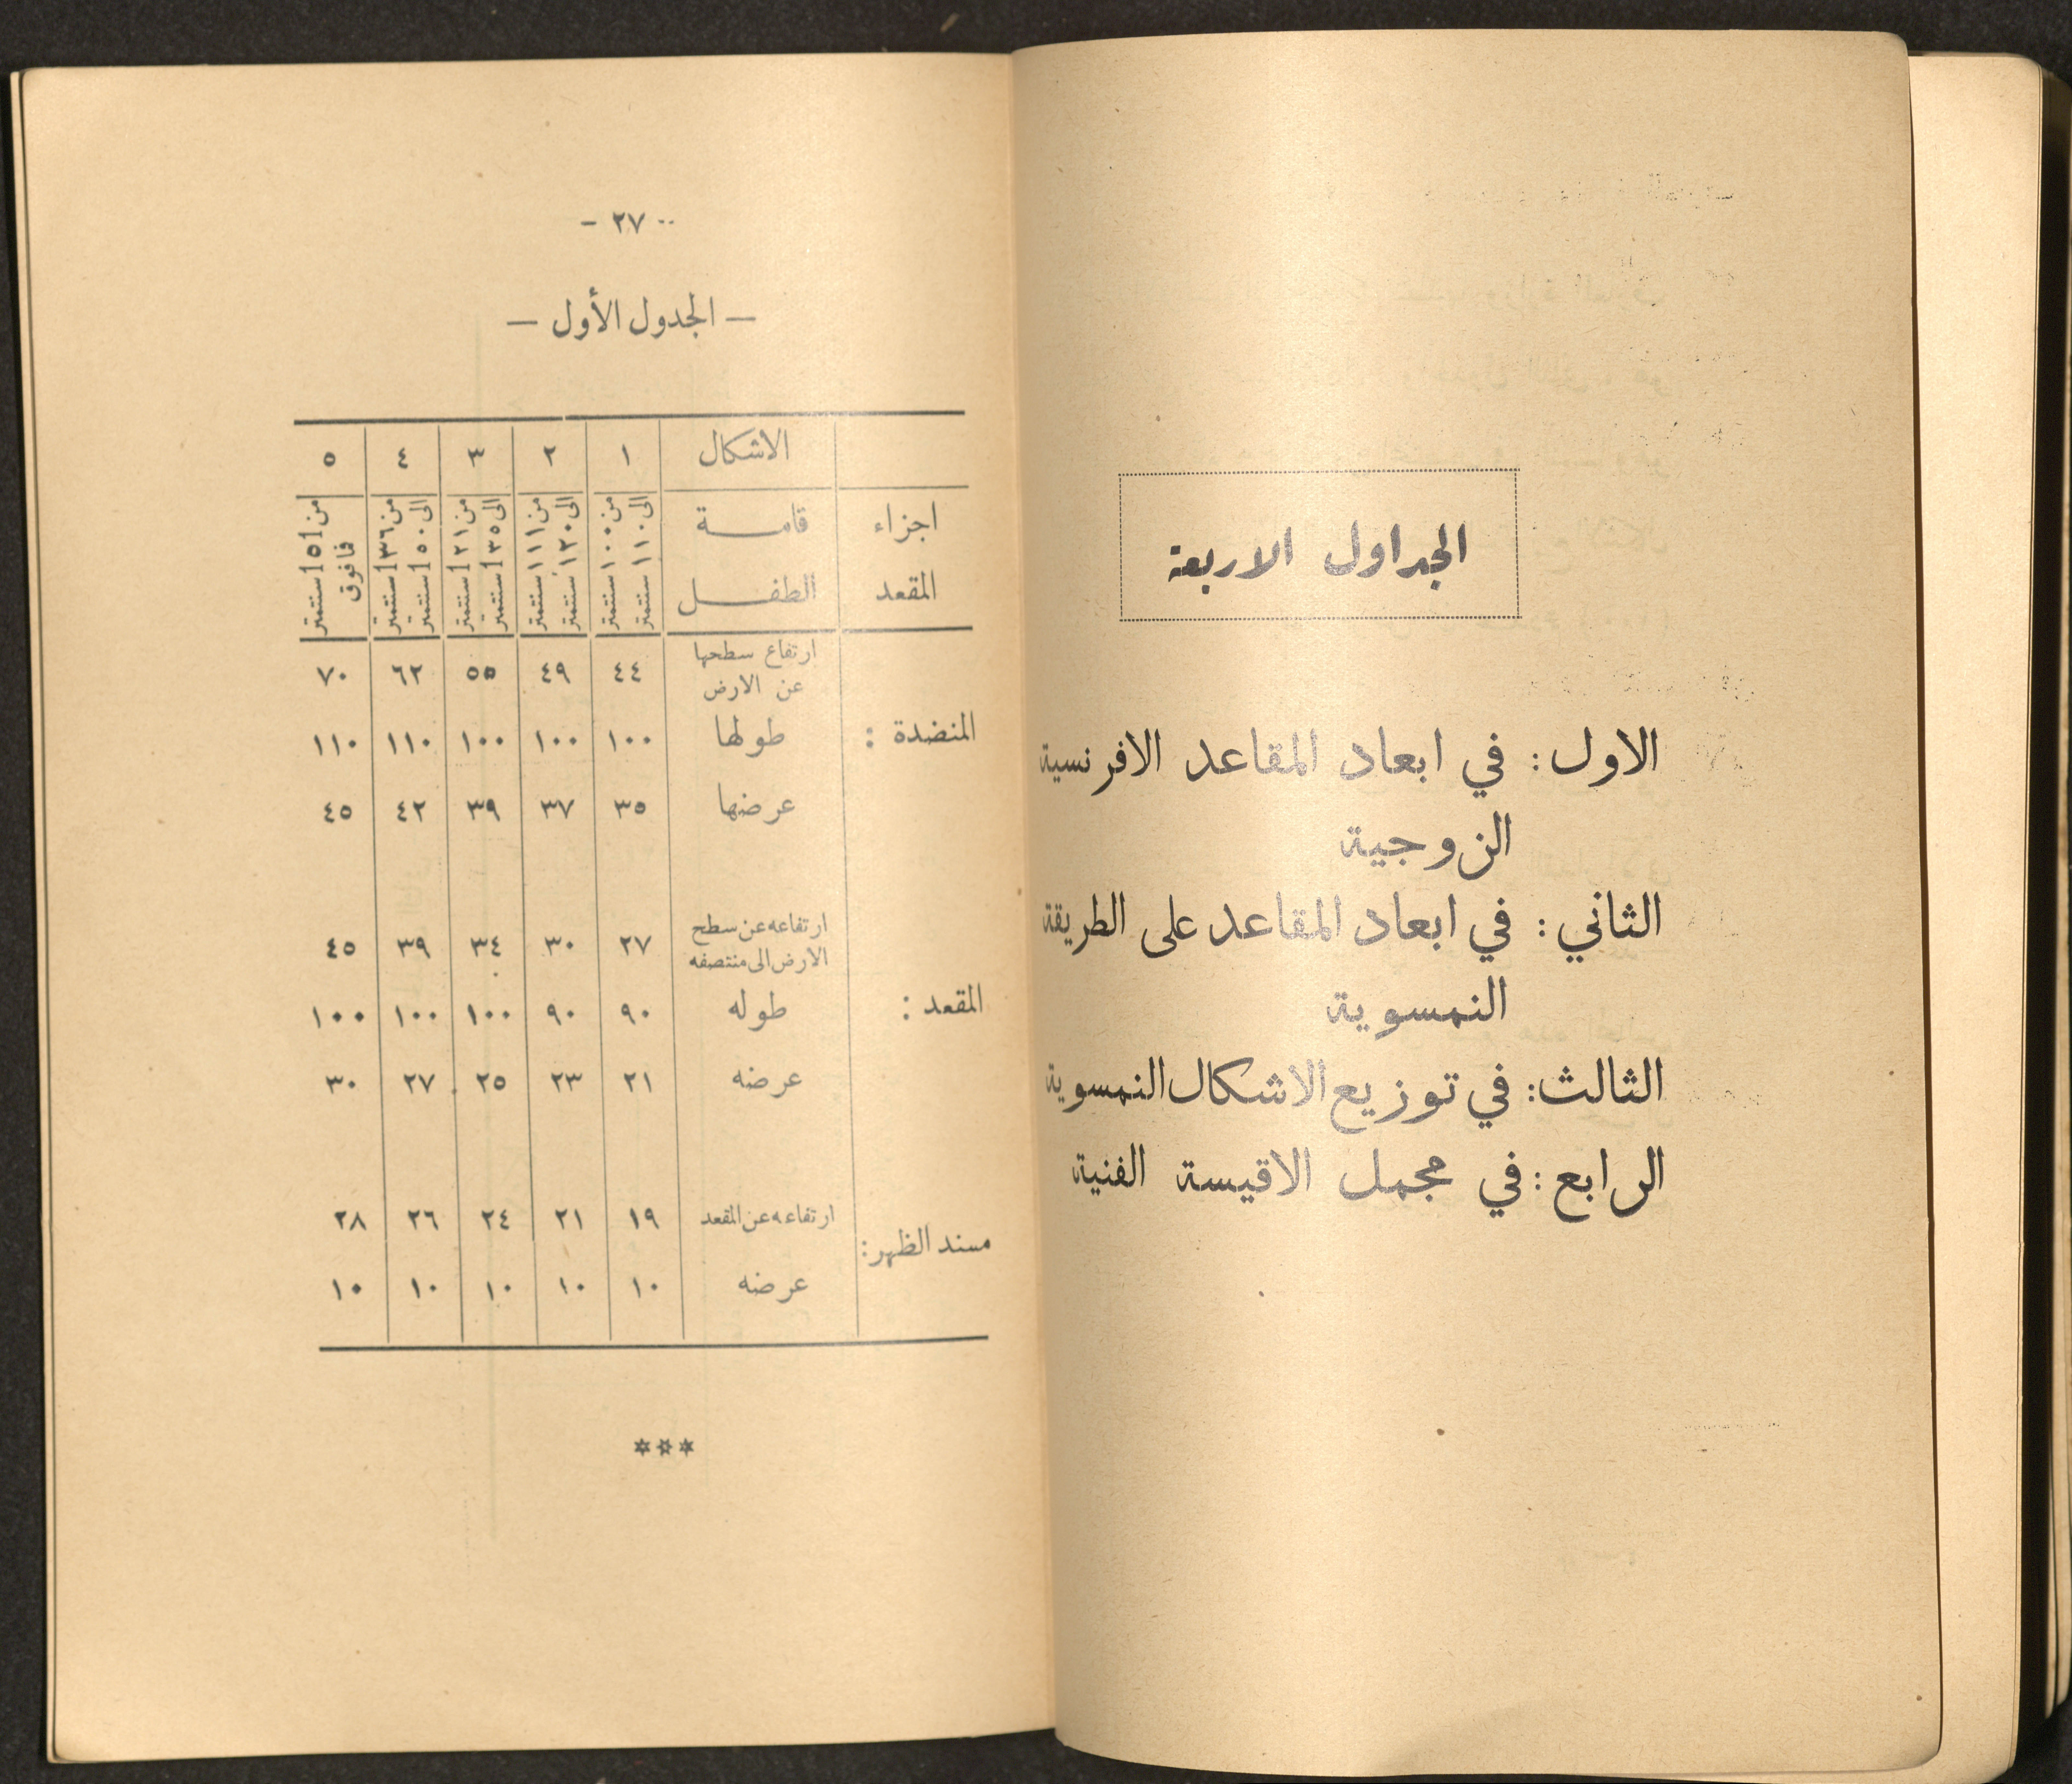 الجداول الاربعة
الاول : في ابعاد المقاعد الافرنسية
الزوجية
الثاني : في ابعاد المقاعد على الطريقة
النمسوية
الثالث : في توزيع الاشكال النمسوية
الرابع : في مجمل الاقيسة الفنية
- ٢٧ -
— الجدول الأول —
الاشكال ١ ٢ ٣ ٤ ٥
اجزاء المقعد
قامة الطفل
من ١٠٠ سنتمتر
الى ١١٠ سنتمتر
من ١١١ سنتمتر
الى ١٢٠ سنتمتر
من ١٢١ سنتمتر
الى ١٣٥ سنتمتر
من ١٣٦ سنتمتر
الى ١٥٠ سنتمتر
من ١٥١ سنتمتر
فما فوق
المنضدة :
ارتفاع سطحها
عن الارض ٤٤ ٤٩ ٥٥ ٦٢ ٧٠
طولها ١٠٠ ١٠٠ ١٠٠ ١١٠ ١١٠
عرضها ٣٥ ٣٧ ٣٩ ٤٢ ٤٥
المقعد :
ارتفاعه عن سطح
الارض الى منتصفه ٢٧ ٣٠ ٣٤ ٣٩ ٤٥
طوله ٩٠ ٩٠ ١٠٠ ١٠٠ ١٠٠
عرضه ٢١ ٢٣ ٢٥ ٢٧ ٣٠
مسند الظهر :
ارتفاعه عن المقعد ١٩ ٢١ ٢٤ ٢٦ ٢٨
عرضه ١٠ ١٠ ١٠ ١٠ ١٠
***